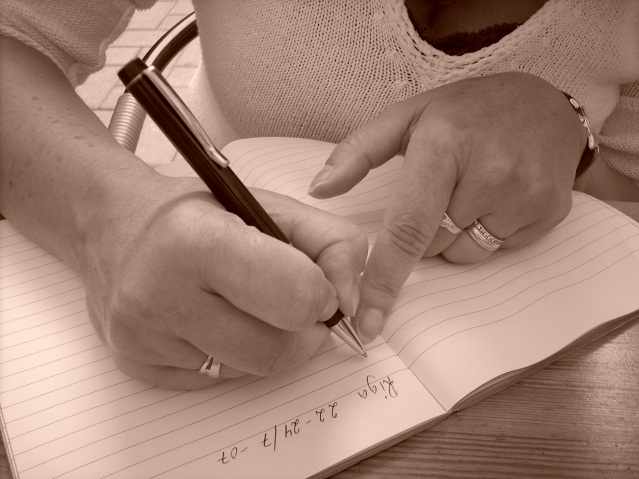 Riga 22-24/7 -07